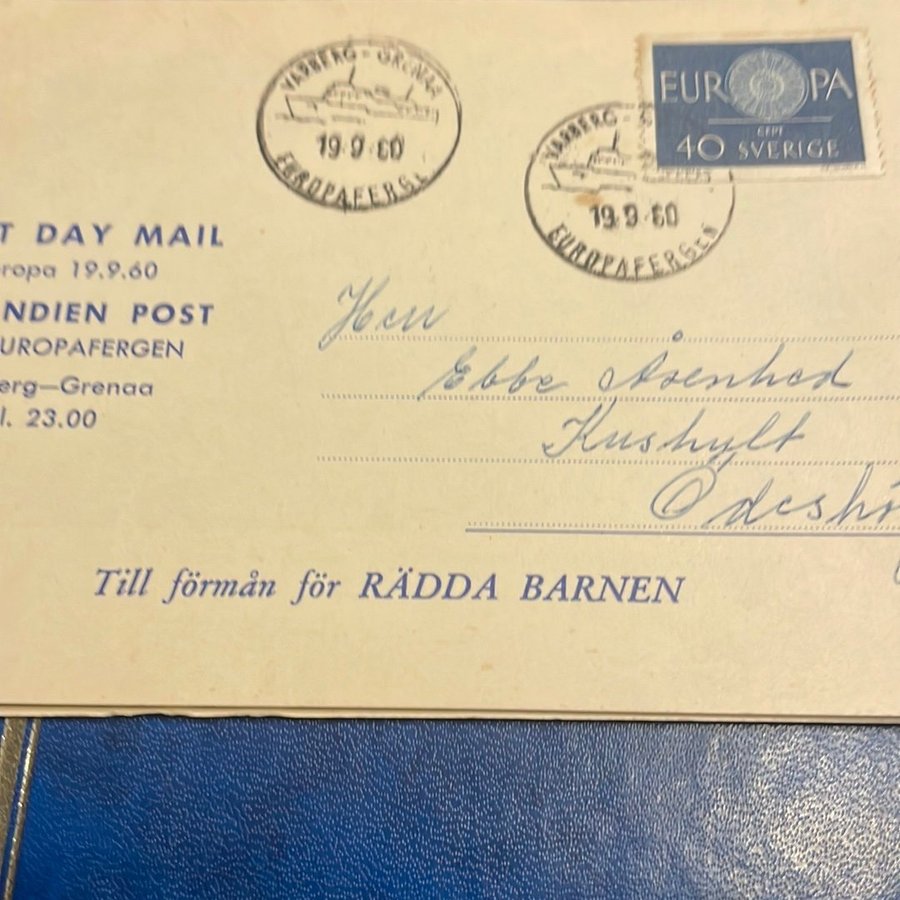 VARBERG - GRENAA
19·9·60
EUROPAFERGEN
VARBERG -
19.9.60
EUROPAFERGEN
EUROPA
CEPT
40 SVERIGE
T DAY MAIL
ropa 19.9.60
NDIEN POST
UROPAFERGEN
erg—Grenaa
l. 23.00
Herr
Ebbe
Ödeshö
Till förmån för RÄDDA BARNEN